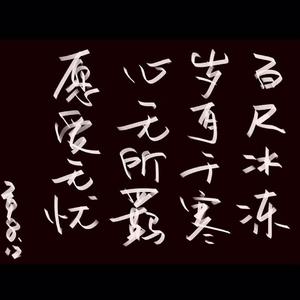 百尺冰冻
岁有千寒
心无所羁
愿爱无忧